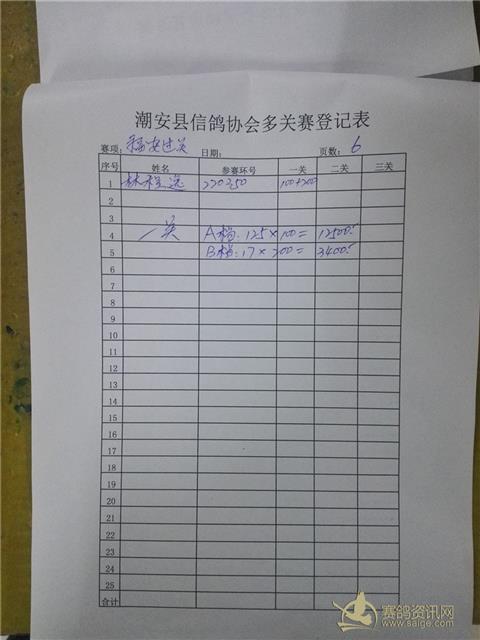 潮安县信鸽协会多关赛登记表
赛项: 福安过关 日期: 页数: 6
序号 姓名 参赛环号 一关 二关 三关
1 林程远 220250 100+200
2
3
4 一关 A档: 125×100= 12500.
5 B档: 17×200= 3400.
6
7
8
9
10
11
12
13
14
15
16
17
18
19
20
21
22
23
24
25
合计
赛鸽资讯网
www.saige.com